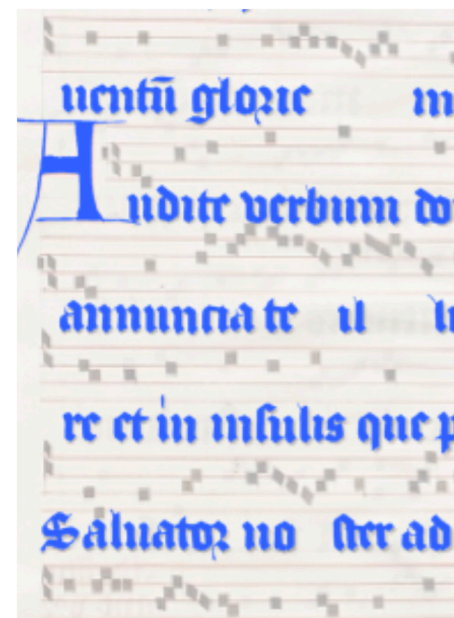 uentū glorie
Audite verbum do
annunciate il
re et in insulis que p
Saluator no ster ad